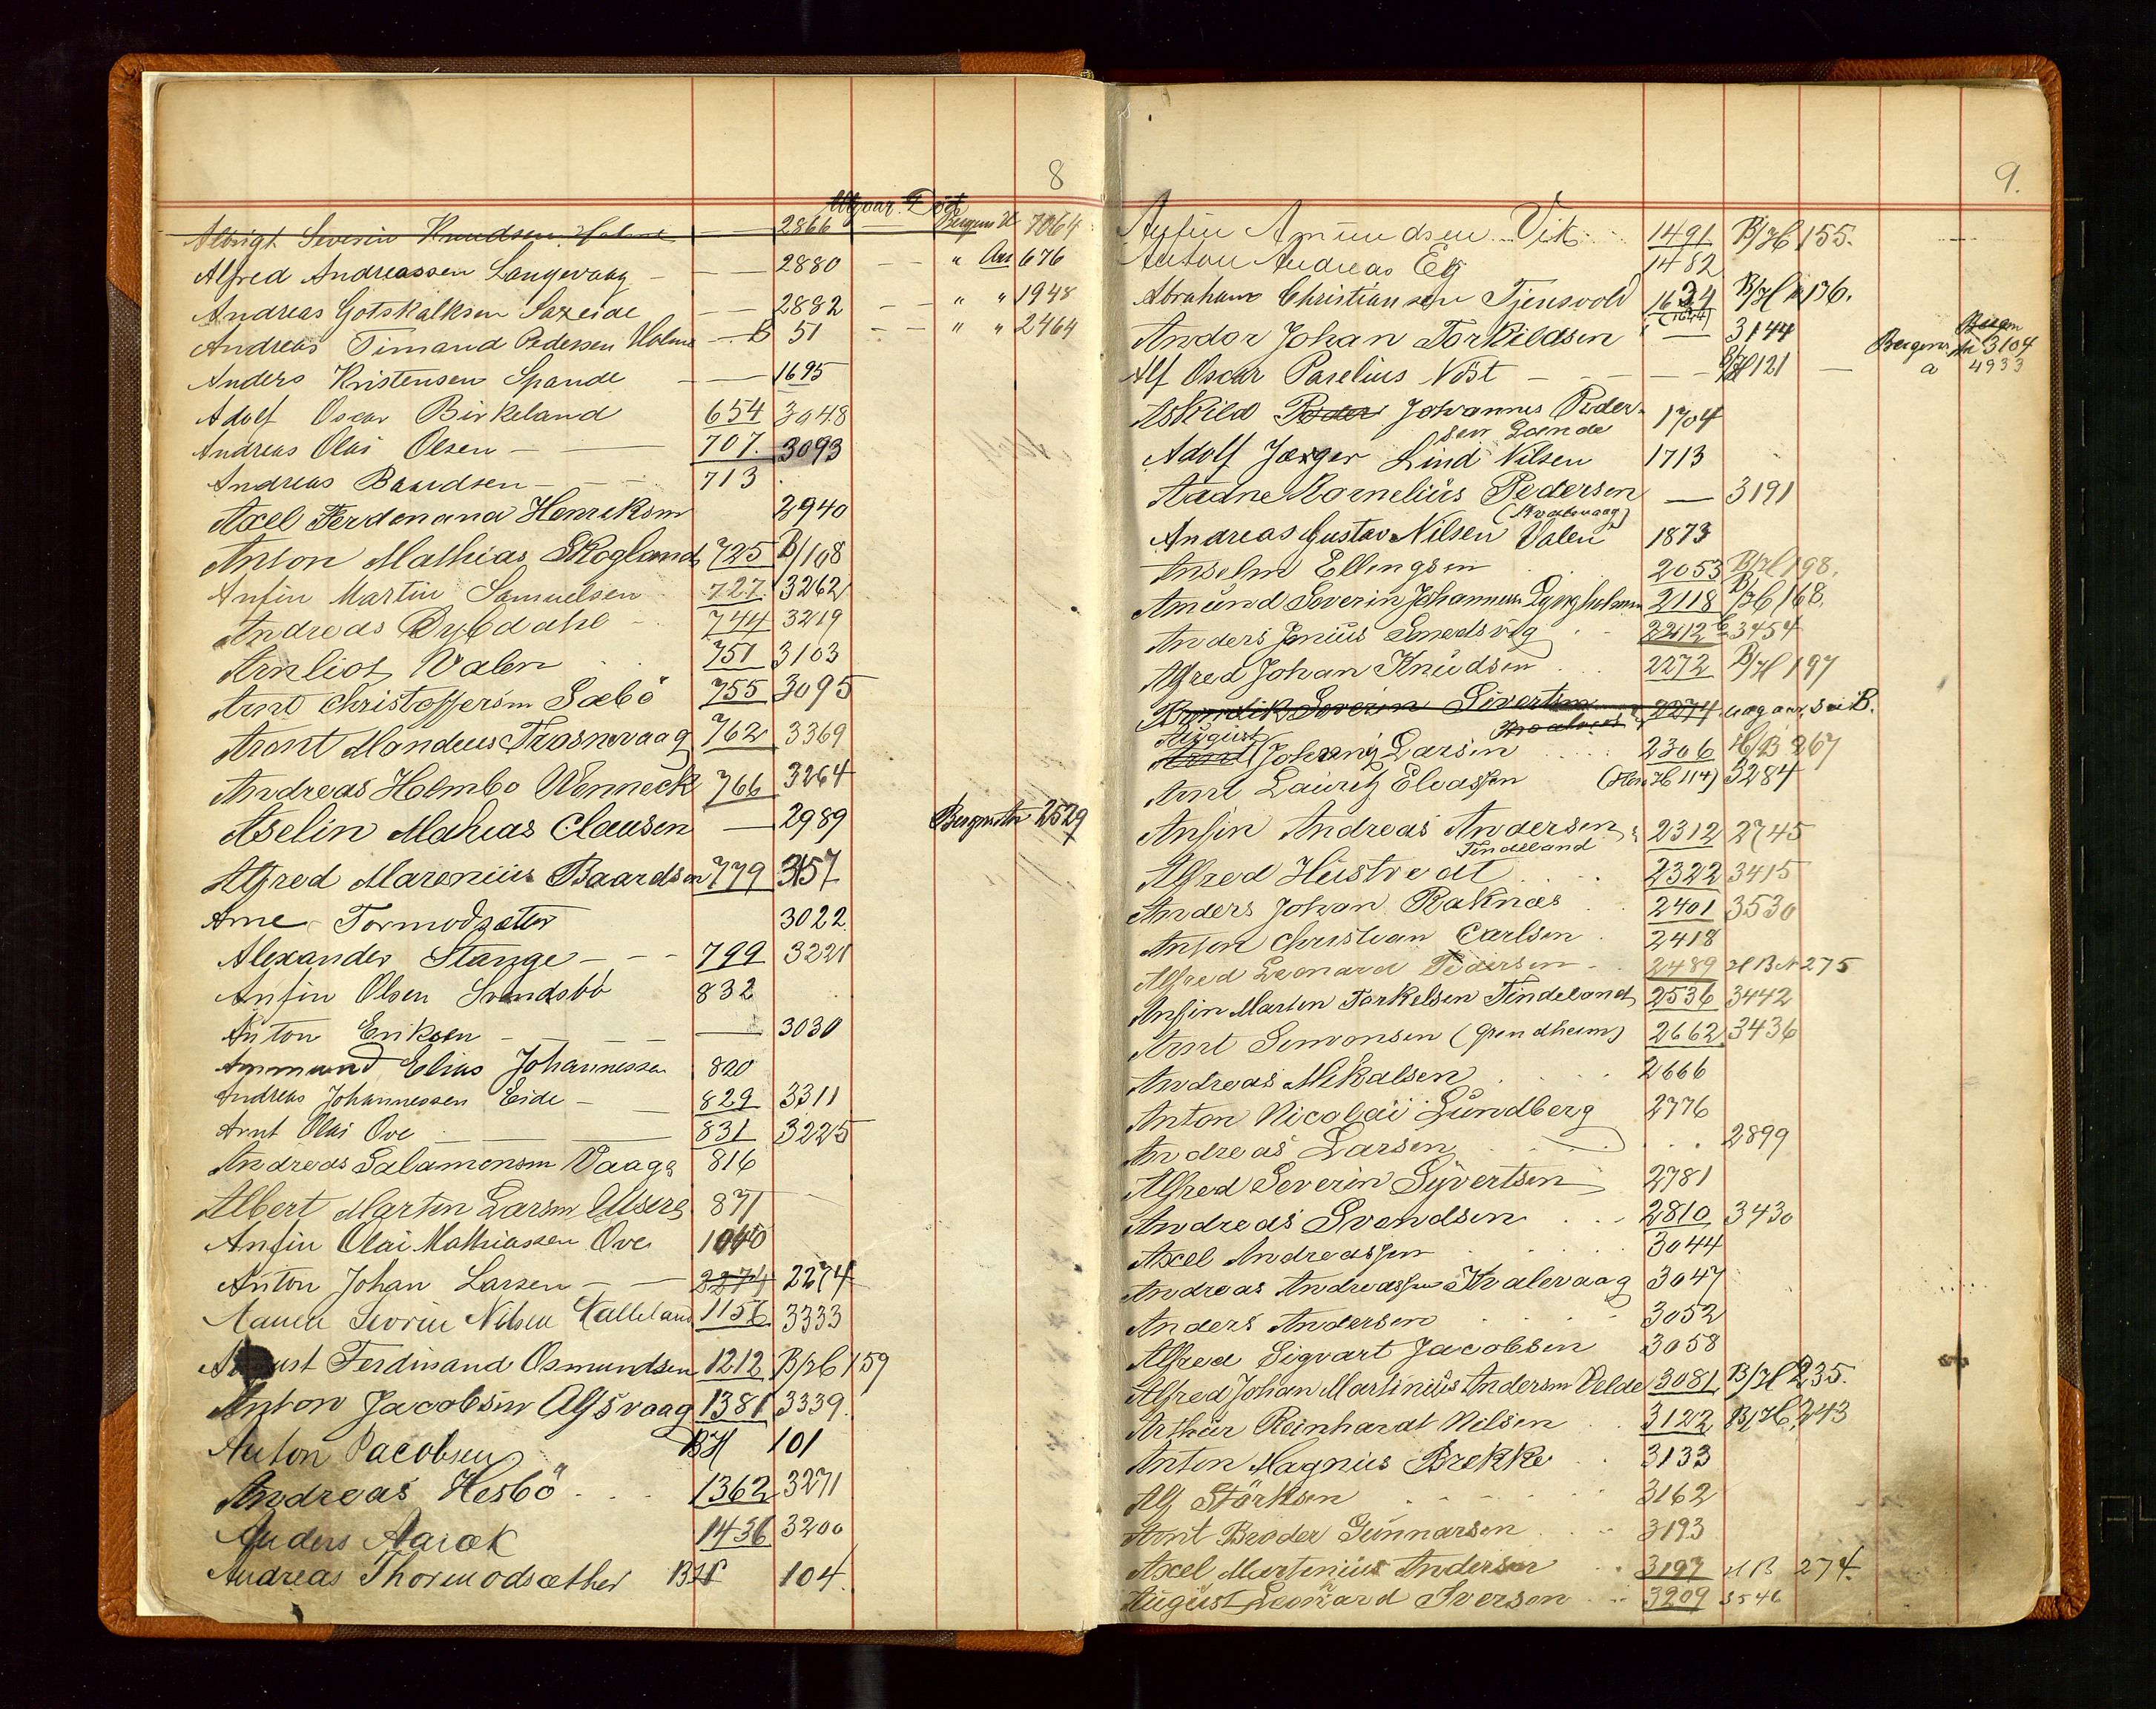 8
Albrigt Severin Knudsen Holme — — 2866 — Bergens H 7064
Alfred Andreassen Langevaag — — — 2880 — — " Ans 676
Andreas Gotskalksen Saxeide — — 2882 — — " " 1948
Andreas Timand Pedersen Holme — B 51 — — " " 2464
Anders Kristensen Spande — — 1695
Adolf Oscar Birkeland 654 3048
Andreas Olai Olsen — — 707. 3093
Andreas Baardsen — — — 713
Axel Ferdinand Henriksen 2940
Anton Mathias Skogland 725 B/108
Anfin Martin Samuelsen 727. 3262
Andreas Dybdahl — 744 3219
Arnliot Valen 751 3103
Arnt Christoffersen Sæbö 755 3095
Aront Mandeus Trosnavaag 762 3369
Andreas Holmbo Wenneck 766 3264
Aselin Mahias Clausen — 2989 Bergens An 2529
Alfred Marenius Baardsen 779 3157
Arne Tormodsæter 3022
Alexander Stange — — — 799 3221
Anfin Olsen Svendsbö 832
Anton Eriksen — — — — 3030
Ammund Elias Johannessen 820
Andreas Johannessen Eide — — 829 3311
Arnt Olai Ove — — — 831 3225
Andreas Salamonsen Vaage 816
Albert Martin Larsen 871
Anfin Olai Mathiassen Ove 1040
Anton Johan Larsen — — 2274 2274
Sevrin Nilsen Kalleland 1156 3333
August Ferdinand Osmundsen 1212 B/H 159
Anton Jacobsen Alfsvaag 1381 3339.
Anton Jacobsen BH 101
Andreas Hesbö . . . 1362 3271
Anders Aarak 1436 3200
Andreas Thormodsæther BH 104.
9.
Anfin Amundsen Vik 1491 B/H 155.
Anton Andreas Eg 1482
Abraham Christiansen Tjensvold 1634 B/H 136.
(1644)
Andor Johan Torkildsen — 3144 Bergens An 3104
Alf Oscar Paselius Nöst — — — — B/H 121 — a 4933
Askild Peder Johannes Peder- 1704
sen Lænde
Adolf Jæger Lind Nilsen 1713
Aadne Kornelius Pedersen — 3191
(Kvalevaag)
Andreas Gustav Nilsen Valen 1873
Anselm Ellingsen 2053 B/H 198.
Amund Severin Johannesen Dyngholmen 2118 B/H 168.
Anders Jenius Smedsvig 2212 3454
Alfred Johan Knudsen 2272 B/H 197
Severin Sivertsen 2274 B.
August
Arnt Johnny Larsen 2306 H/B 267
Arnt Lauritz Eliassen (Hen. H 114) 3284
Anfin Andreas Andersen 2312 2745
Tindeland
Alfred Hustvedt 2322 3415
Anders Johan Raknæs 2401 3530
Anton Christian Carlsen 2418
Alfred Leonard Pedersen 2489 H B N 275
Anfin Marten Torkelsen Tindeland 2536 3442
Arnt Simonsen (Grindheim) 2662 3436
Andreas Mikalsen 2666
Anton Nicolai Lundberg 2776
Andreas Larsen . . . 2899
Alfred Severin Syvertsen 2781
Andreas Svendsen 2810 3430
Axel Andreassen 3044
Andreas Andreassen Kvalevaag 3047
Anders Andersen 3052
Alfred Sigvart Jacobsen 3058
Alfred Johan Martinius Andersen Velde 3081 B/H 235.
Arthur Reinhardt Nilsen 3122 B/H. 243
Anton Magnus Brekke 3133
Alf Störksen 3162
Arnt Broder Gunnarsen 3193
Axel Martinius Andersen 3197 H B 274.
August Leonard Iversen 3209 3546